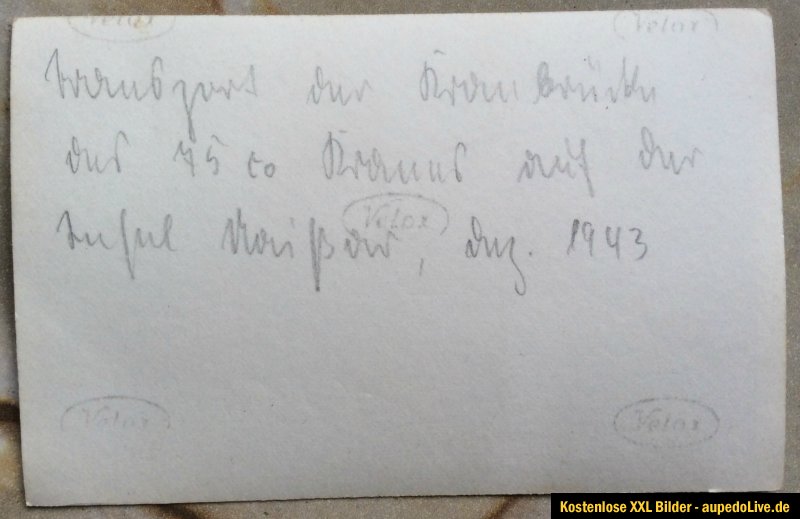 Velox Velox
Transport der Kranbrücke
des 75 to Kranes auf der
Velox
Insel Naißar, Dez. 1943
Velox Velox
Kostenlose XXL Bilder - aupedoLive.de